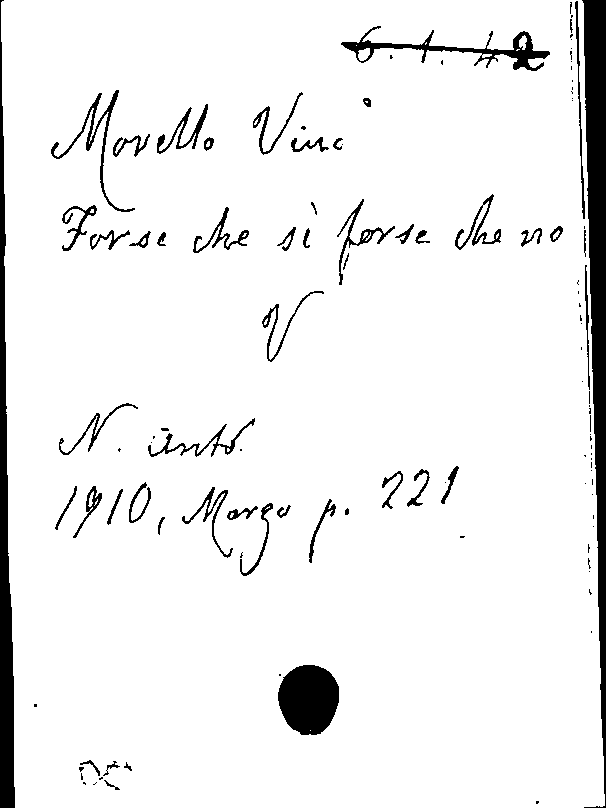 6. 1. 42
Morello Vinc°
Forse che sì forse che no
V
N. Anto.
1910, Marzo p. 221